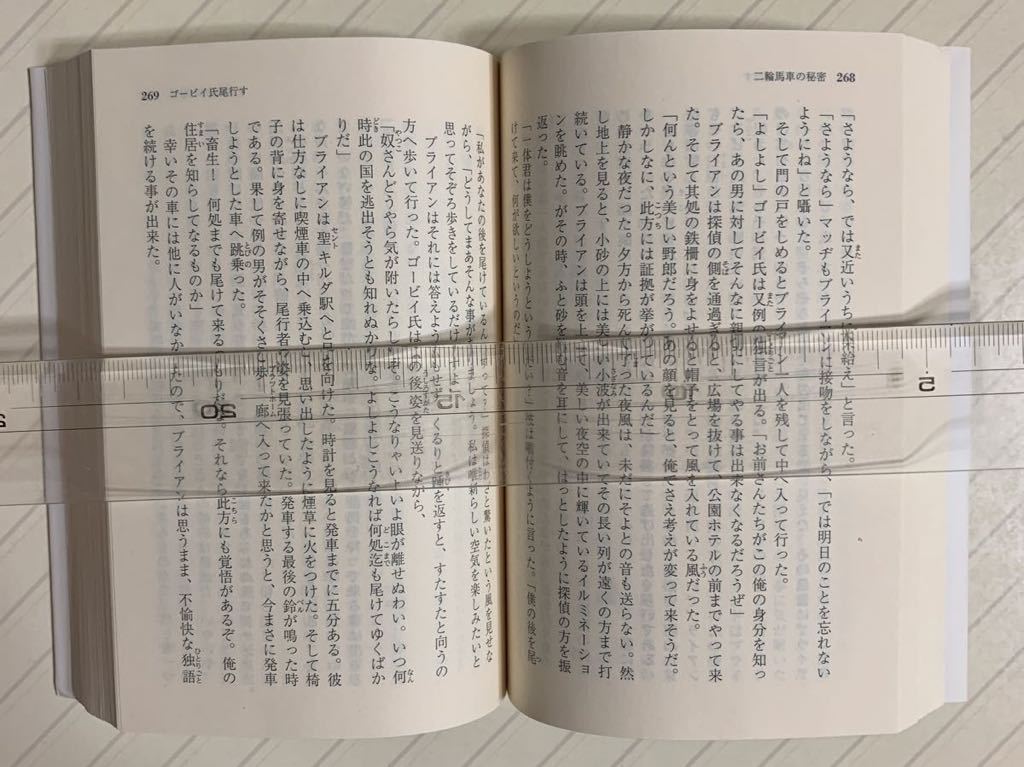 二輪馬車の秘密 268
「さようなら、では又近いうちに来給え」と言った。
「さようなら」マッヂもブライアンに接吻をしながら、「では明日のことを忘れない
ようにね」と囁いた。
そして門の戸をしめるとブライアン一人を残して中へ入って行った。
「よしよし」ゴービイ氏は又例の独言が出る。「お前さんたちがこの俺の身分を知っ
たら、あの男に対してそんなに親切にしてやる事は出来なくなるだろうぜ」
ブライアンは探偵の側を通過ぎると、広場を抜けて、公園ホテルの前までやって来
た。そして其処の鉄柵に身をよせると帽子をとって風を入れている風だった。
「何んという美しい野郎だろう。あの顔を見ると、俺でさえ考えが変って来そうだ。
しかしなに、此方には証拠が挙がっているんだ」
静かな夜だった。夕方から死んで了った夜風は、未だにそよとの音も送らない。然
し地上を見ると、小砂の上には美しい小波が出来ていてその長い列が遠くの方まで打
続いている。ブライアンは頭を上げて、美しい夜空の中に輝いているイルミネーショ
ンを眺めた。がその時、ふと砂を踏む音を耳にして、はっとしたように探偵の方を振
返った。
「一体君は僕をどうしようという いは噛付くように言った。「僕の後を尾
けて来て、何が欲しいというのだ
269 ゴービイ氏尾行す
「私があなたの後を尾けているん って」探偵はわざと驚いたという風を見せな
がら、「どうしてまあそんな事が ましょう。私は唯新らしい空気を楽しみたいと
思ってそぞろ歩きをしているだけ すよ」
ブライアンはそれには答えようもせず、くるりと踵を返すと、すたすたと向うの
方へ歩いて行った。ゴービイ氏はその後姿を見送りながら、
「奴さんどうやら気が附いたらしいぞ。こうなりゃいよいよ眼が離せぬわい。いつ何
時此の国を逃出そうとも知れぬからな。よしよしこうなれば何処迄も尾けてゆくばか
りだ」
ブライアンは聖キルダ駅へと足を向けた。時計を見ると発車までに五分ある。彼
は仕方なしに喫煙車の中へ乗込むと、思い出したように煙草に火をつけた。そして椅
子の背に身を寄せながら、尾行者の姿を見張っていた。発車する最後の鈴が鳴った時
である。果して例の男がそそくさと歩廊へ入って来たかと思うと、今まさに発車
しようとした車へ跳乗った。
「畜生！　何処までも尾けて来るつもりだな。それなら此方にも覚悟があるぞ。俺の
住居を知らしてなるものか」
幸いその車には他に人がいなかったので、ブライアンは思うまま、不愉快な独語
を続ける事が出来た。
15
20